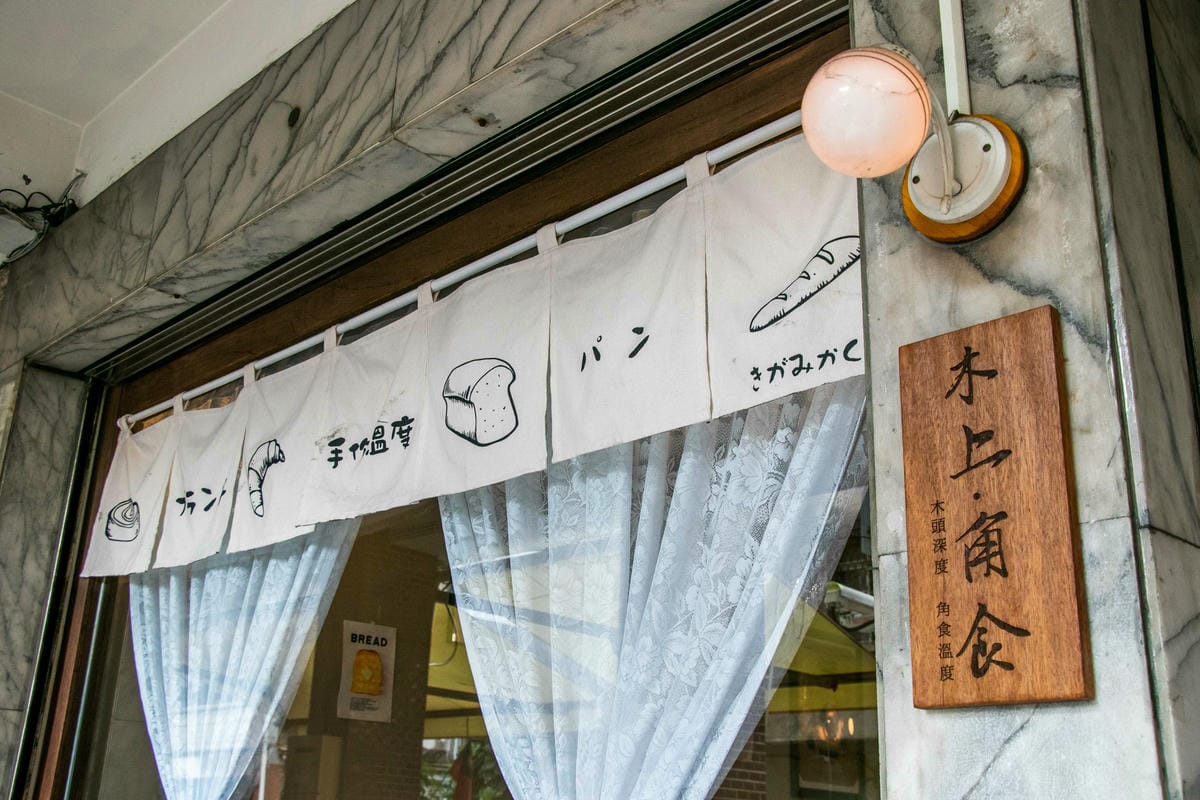 ブラン
手作溫度
パン
きがみかく
BREAD
木上·角食
木頭深度 角食溫度